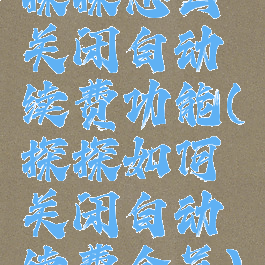 探探怎么
关闭自动
续费功能(
探探如何
关闭自动
续费会员)